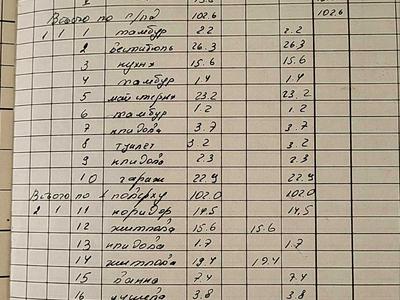 Всього по г/пд 102.6 102.6
1 1 1 тамбур 2.2 2.2
2 вестибюль 26.3 26.3
3 кухня 15.6 15.6
4 тамбур 1.4 1.4
5 майстерня 23.2 23.2
6 тамбур 1.2 1.2
7 кладова 3.7 3.7
8 туалет 3.2 3.2
9 кладова 2.3 2.3
10 гараж 22.9 22.9
Всього по 1 поверху 102.0 102.0
2 1 11 коридор 14.5 14,5
12 житлова 15.6 15.6
13 кладова 1.7 1.7
14 житлова 19.4 19.4
15 ванна 7.4 7.4
16 3.8 3.8